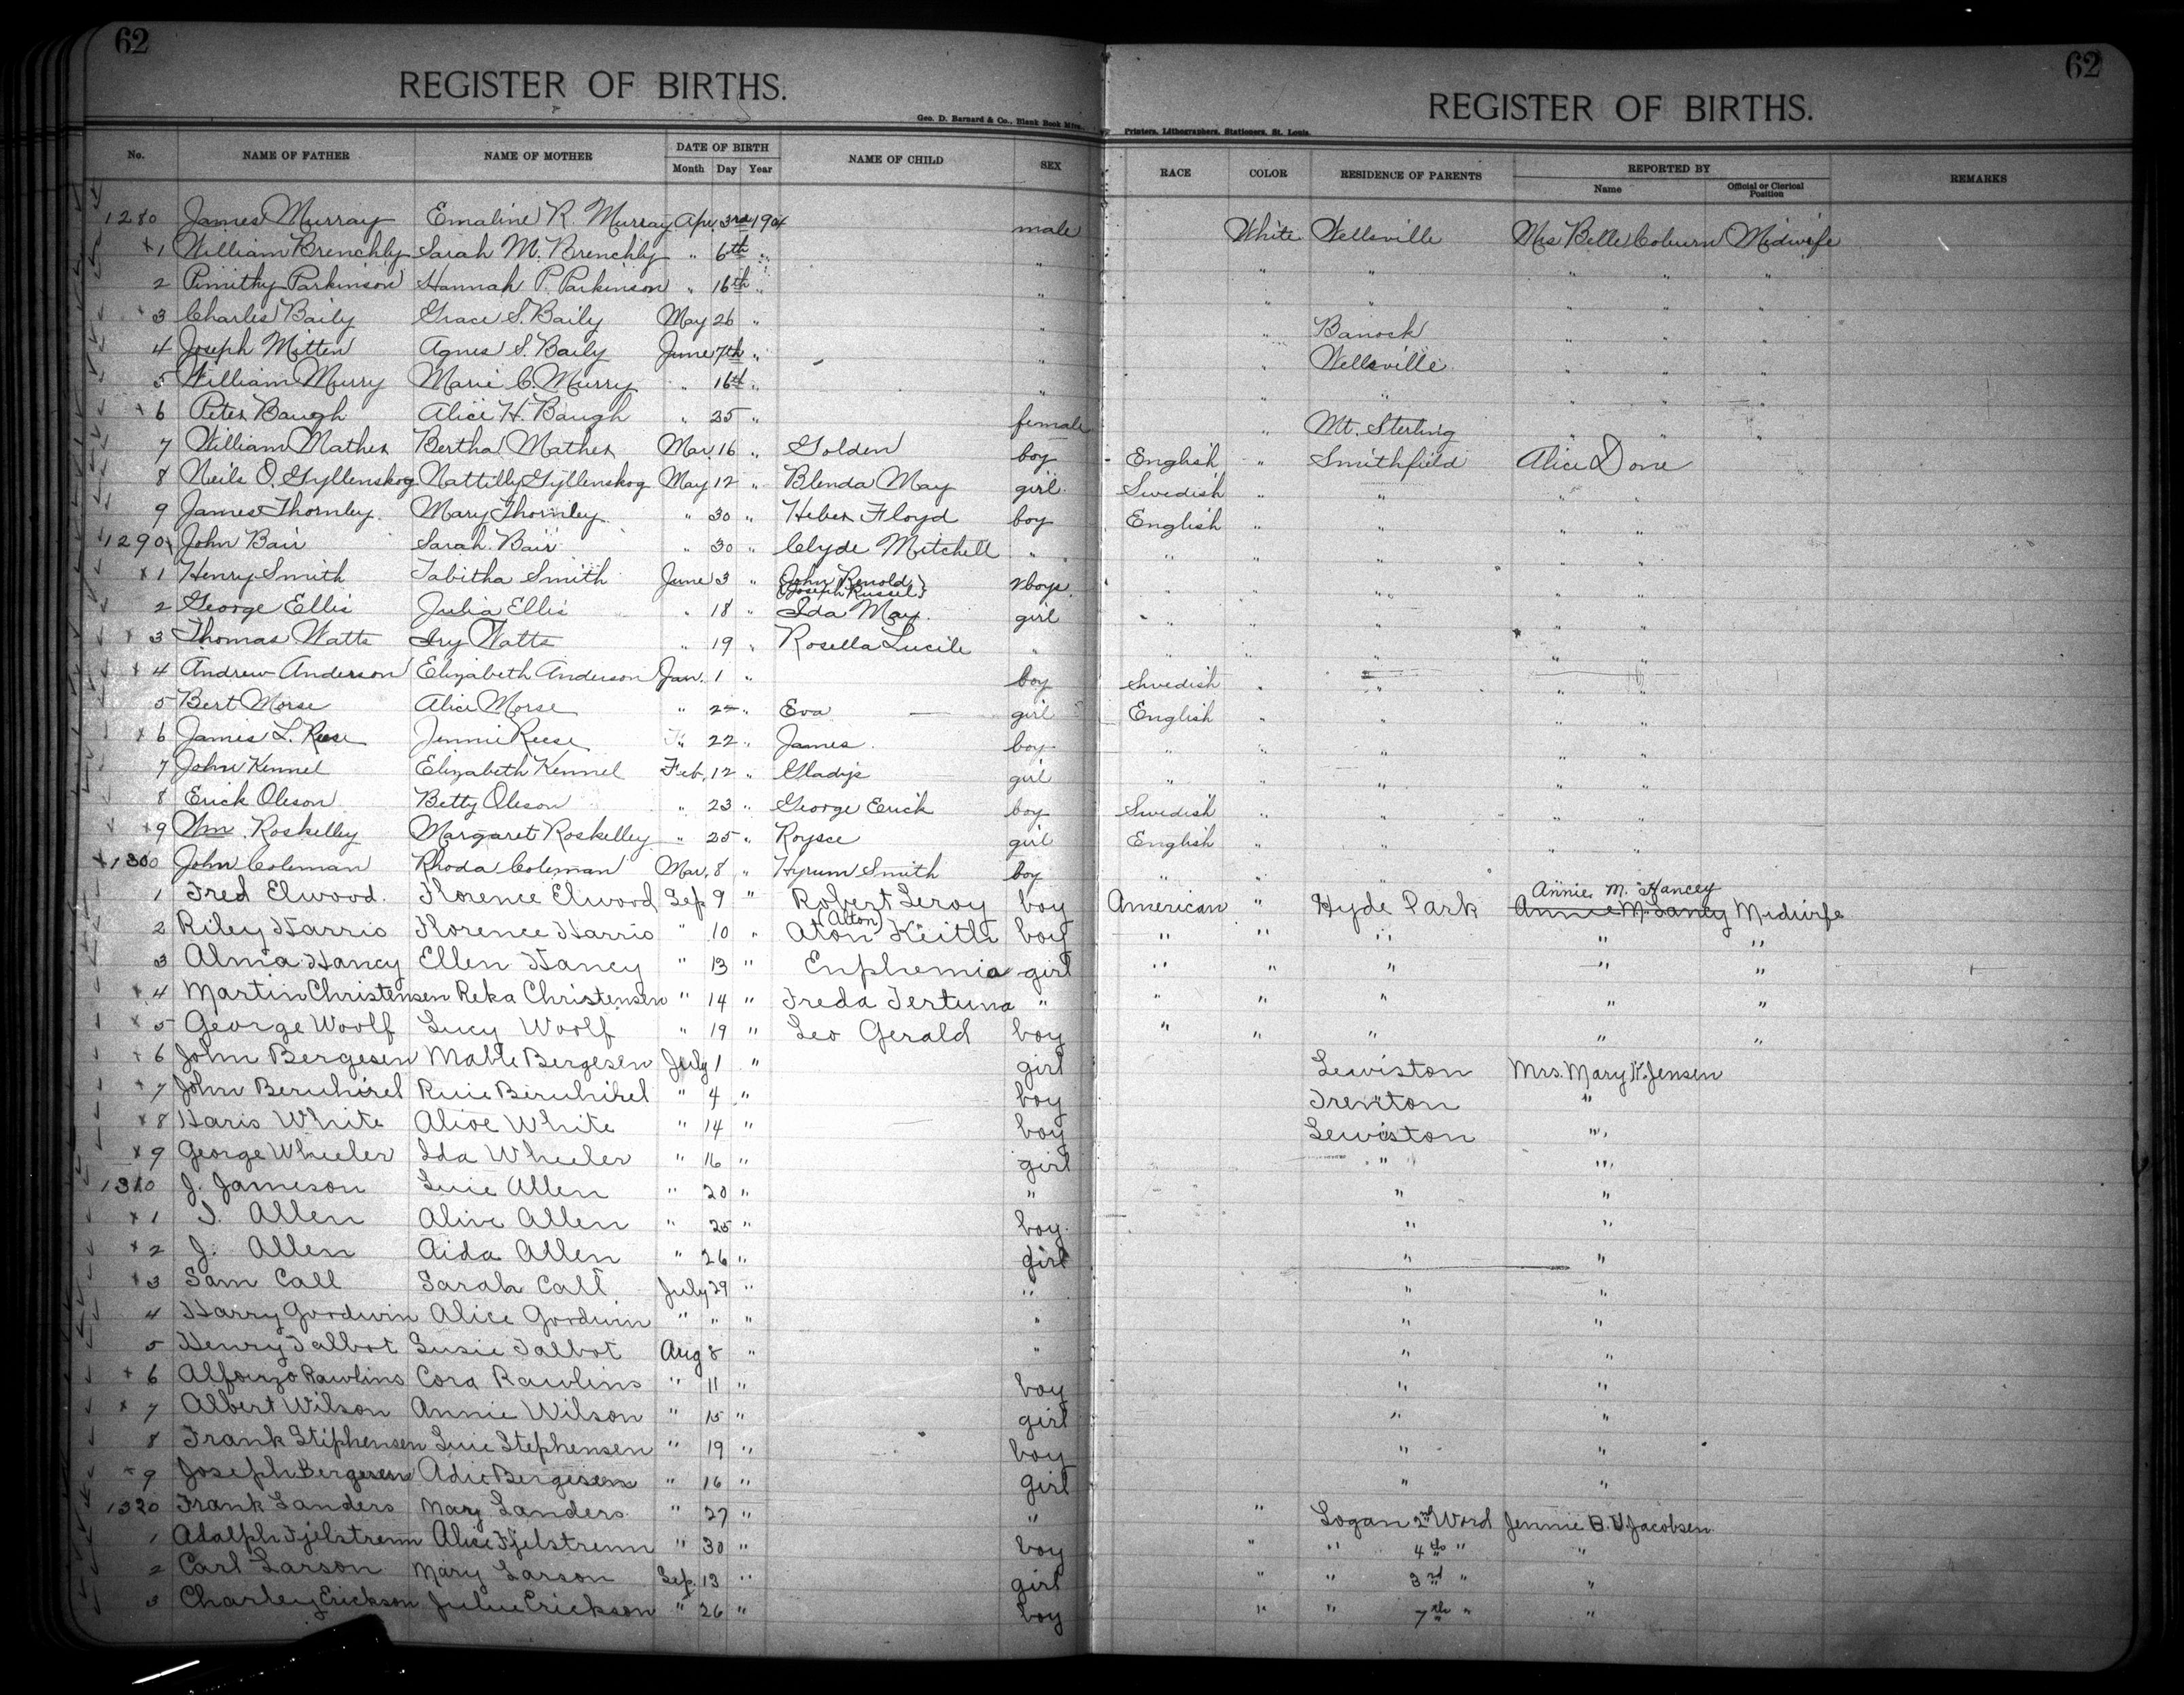 62
62
REGISTER OF BIRTHS.
REGISTER OF BIRTHS.
Geo. D. Barnard & Co., Blank Book Mfrs., Printers, Lithographers, Stationers, St. Louis.
No. NAME OF FATHER NAME OF MOTHER DATE OF BIRTH NAME OF CHILD SEX RACE COLOR RESIDENCE OF PARENTS REPORTED BY REMARKS
Month Day Year Name Official or Clerical Position
1280 James Murray Emaline R. Murray Apr. 3rd 1904 male White Wellsville Mrs Belle Coburn Midwife
x1 William Brenchly Sarah M. Brenchly " 6th " " " " " " "
2 Timithy Parkinson Hannah P. Parkinson " 16th " " " " " " "
x3 Charles Baily Grace S. Baily May 26 " " " Banock " " "
4 Joseph Mitten Agnes S. Baily June 7th " " " Wellsville " " "
5 William Murry Marie C. Murry " 16th " " " " " " "
x6 Peter Baugh Alice H. Baugh " 25 " female " Mt. Sterling " " "
7 William Mather Bertha Mather Mar. 16 " Golden boy English " Smithfield Alice Done
8 Neils O. Gyllenskog Nattilly Gyllenskog May 12 " Blenda May girl Swedish " " " "
9 James Thornley Mary Thornley " 30 " Heber Floyd boy English " " " "
1290 John Bair Sarah Bair " 30 " Clyde Mitchell " " " " " "
x1 Henry Smith Tabitha Smith June 3 " John Renold Joseph Russel 2 boys " " " " "
2 George Ellis Julia Ellis " 18 " Ida May girl " " " " "
x3 Thomas Watts Ivy Watts " 19 " Rosella Lucile " " " " " "
x4 Andrew Anderson Elizabeth Anderson Jan. 1 " boy Swedish " " " "
5 Bert Morse Alice Morse " 2 " Eva girl English " " " "
x6 James L. Reese Jennie Reese " 22 " James boy " " " " "
7 John Kennel Elizabeth Kennel Feb. 12 " Gladys girl " " " " "
8 Erick Oleson Betty Oleson " 23 " George Erick boy Swedish " " " "
x9 Wm. Roskelley Margaret Roskelley " 25 " Roysce girl English " " " "
x1300 John Coleman Rhoda Coleman Mar. 8 " Hyrum Smith boy " " " Annie M. Hancey
1 Fred Elwood Florence Elwood Sep 9 " Robert Leroy boy American " Hyde Park Annie M. Hancy Midwife
2 Riley Harris Florence Harris " 10 " (Alton) Aton Keith boy " " " " "
3 Alma Hancy Ellen Hancy " 13 " Enphemia girl " " " " "
x4 Martin Christensen Reka Christensen " 14 " Freda Fertuna " " " " " "
x5 George Woolf Lucy Woolf " 19 " Leo Gerald boy " " " " "
x6 John Bergesen Mable Bergesen July 1 " girl Lewiston Mrs. Mary K. Jensen
x7 John " 4 " boy Trenton "
x8 Haris White Alice White " 14 " boy Lewiston "
x9 George Wheeler Ida Wheeler " 16 " girl " "
1310 J. Jameson Allen " 20 " " " "
x1 Allen Allen " 25 " boy " "
x2 J. Allen Aida Allen " 26 " girl " "
x3 Sam Call Sarah Call July 29 " " " "
4 Harry Goodwin Alice Goodwin " " " " " "
5 Henry Talbot Susie Talbot Aug 8 " " " "
x6 Alfonzo Rawlins Cora Rawlins " 11 " boy " "
x7 Albert Wilson Annie Wilson " 15 " girl " "
8 Frank Stiphensen Stephensen " 19 " boy " "
x9 Joseph Bergesen Adie Bergesen " 16 " girl " "
1320 Frank Landers Mary Landers " 27 " " " Logan 2nd Word Jennie B. V. Jacobsen
1 Adalph Fjelstrenn Alice Fjelstrenn " 30 " boy " " 4th " "
2 Carl Larson Mary Larson Sep. 13 " girl " " 3rd " "
3 Charley Erickson Erickson " 26 " boy " " 7th " "